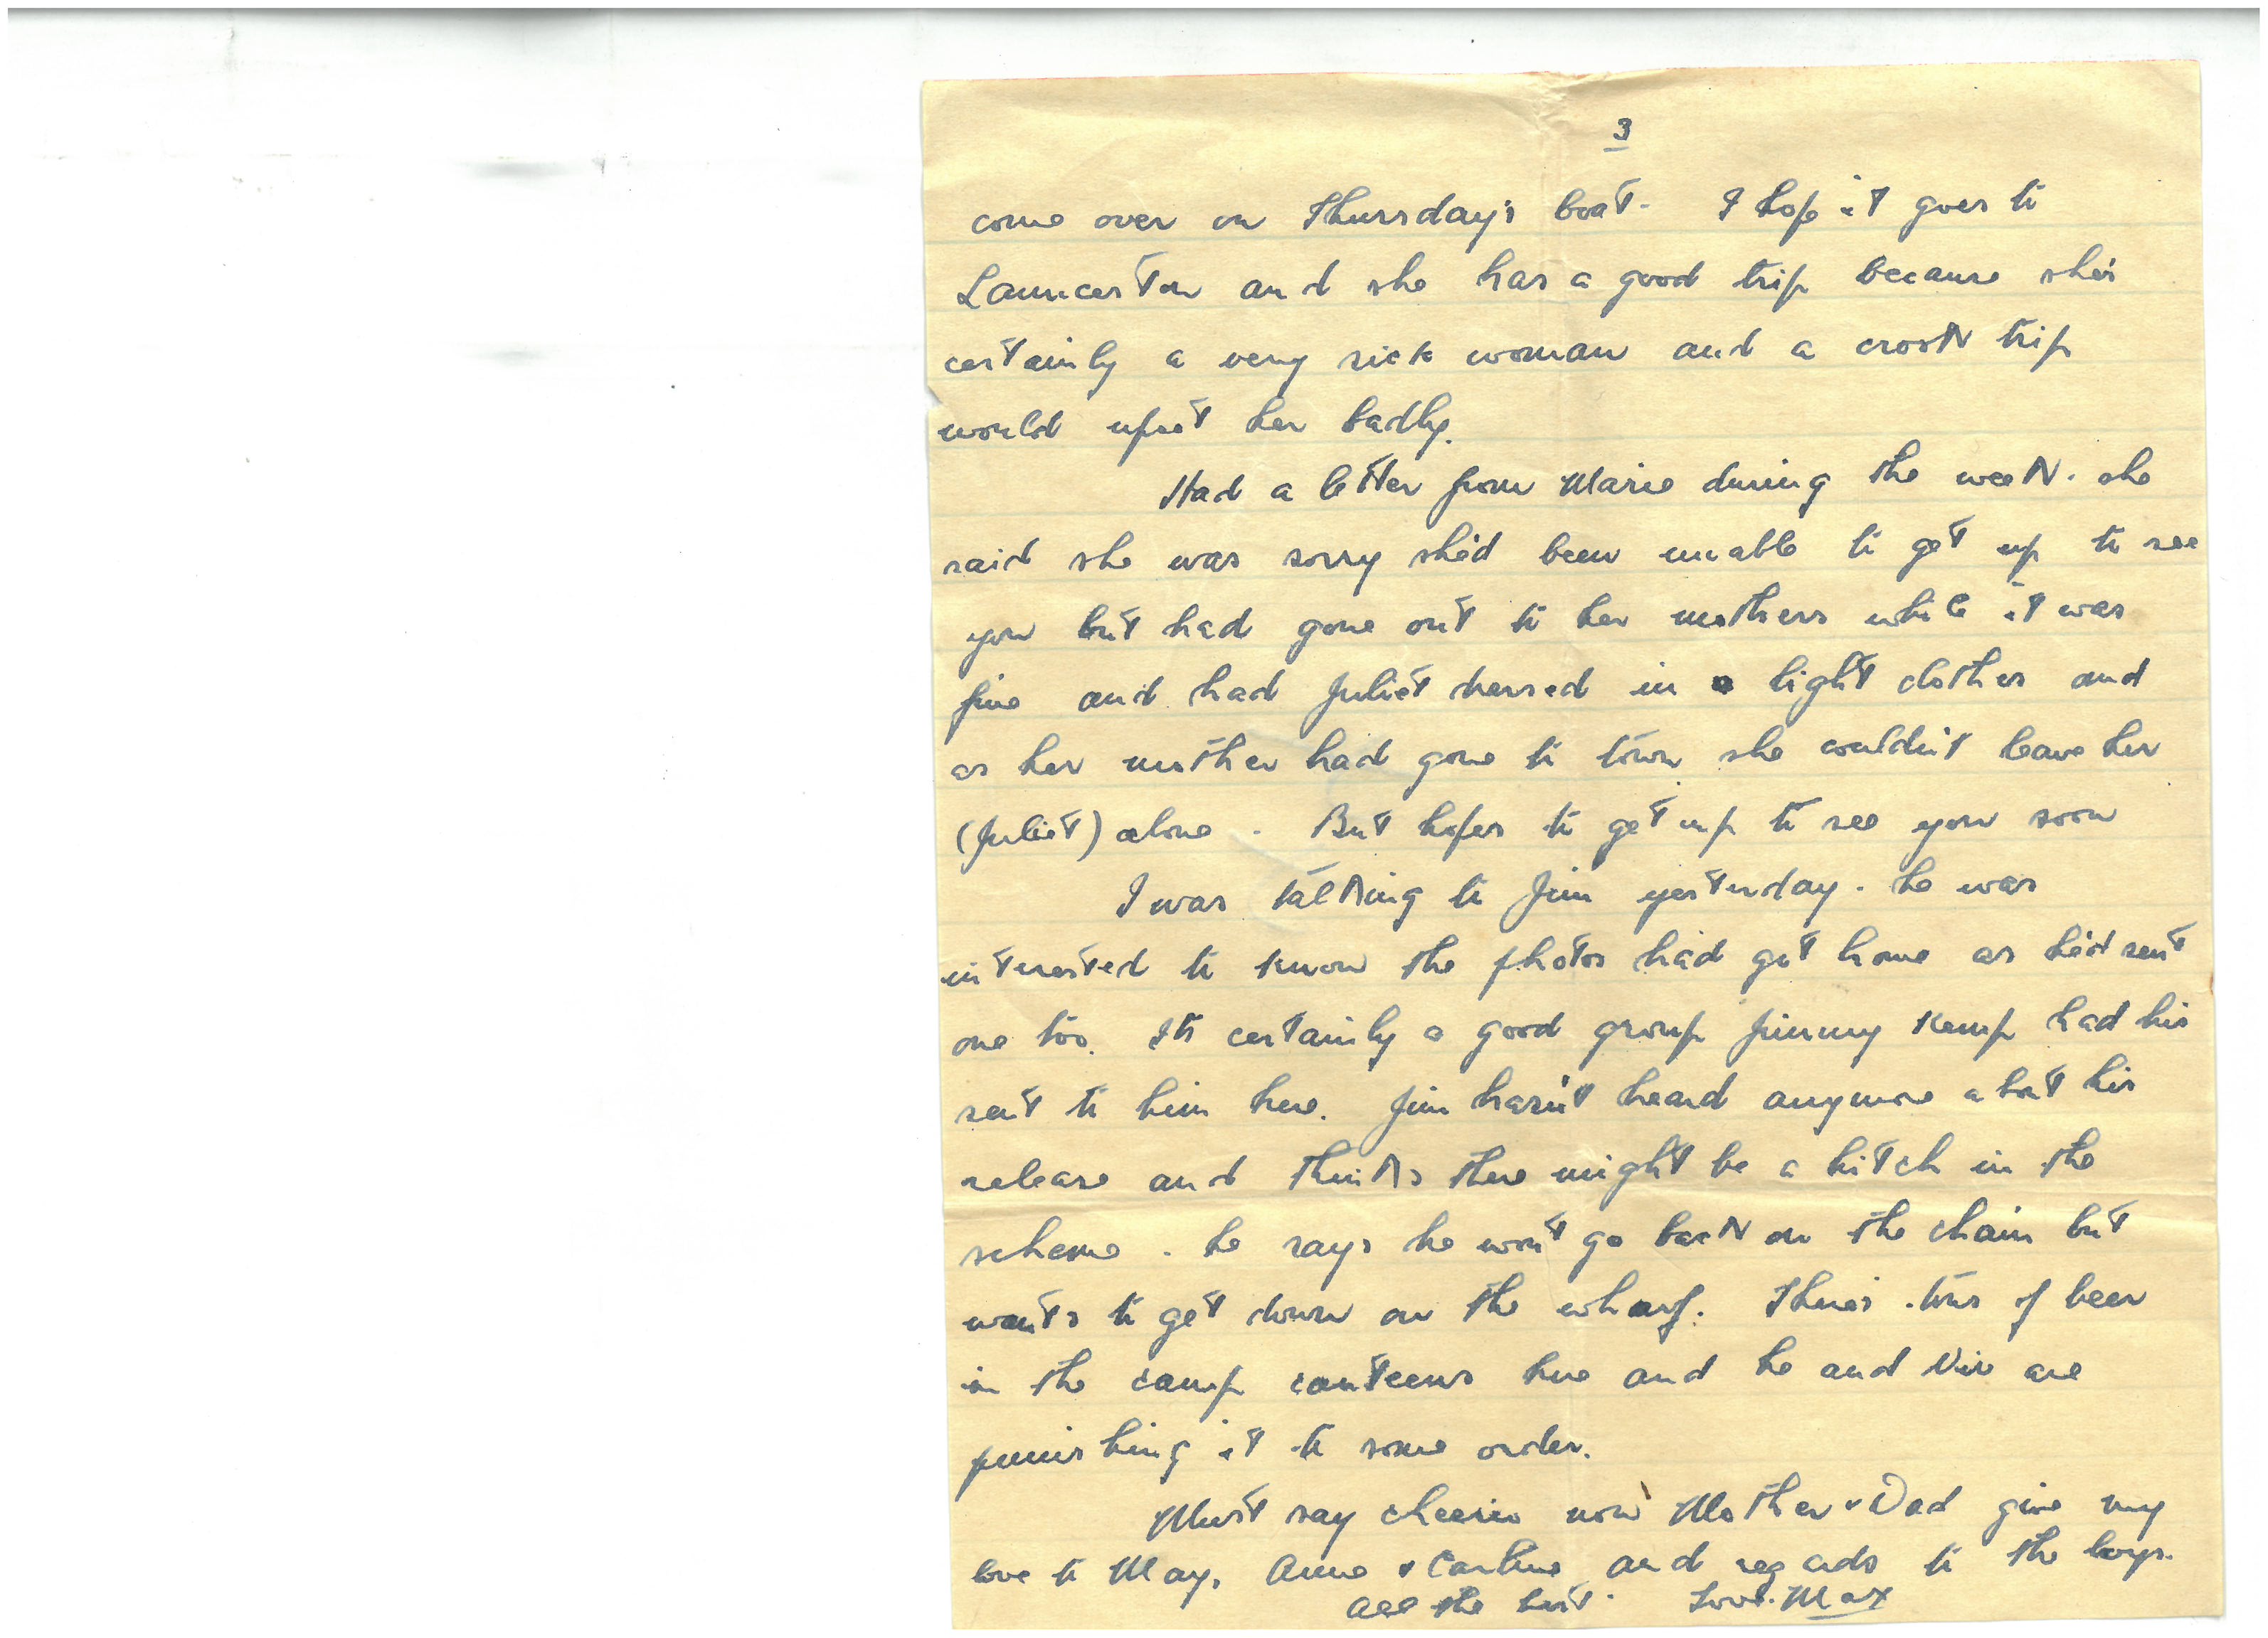 3
come over on Thursday's boat. I hope it goes to
Launceston and she has a good trip because she's
certainly a very sick woman and a crook trip
would upset her badly.
Had a letter from Marie during the week. she
said she was sorry she'd been unable to get up to see
you but had gone out to her mothers while it was
fine and had Juliet dressed in light clothes and
as her mother had gone to town she couldn't leave her
(Juliet) alone. But hopes to get up to see you soon
I was talking to Jim yesterday. he was
interested to know the photos had got home as he'd sent
one too. Its certainly a good group Jimmy Kemp had his
sent to him here. Jim hasn't heard anymore abot his
release and thinks there might be a hitch in the
scheme. he says he won't go back on the chain but
wants to get down on the wharf. There's tons of beer
in the camp canteens here and he and Viv are
punishing it to some order.
Must say cheerio now Mother & Dad give my
love to May, Anne & and regards to the boys.
all the best. Love. Max